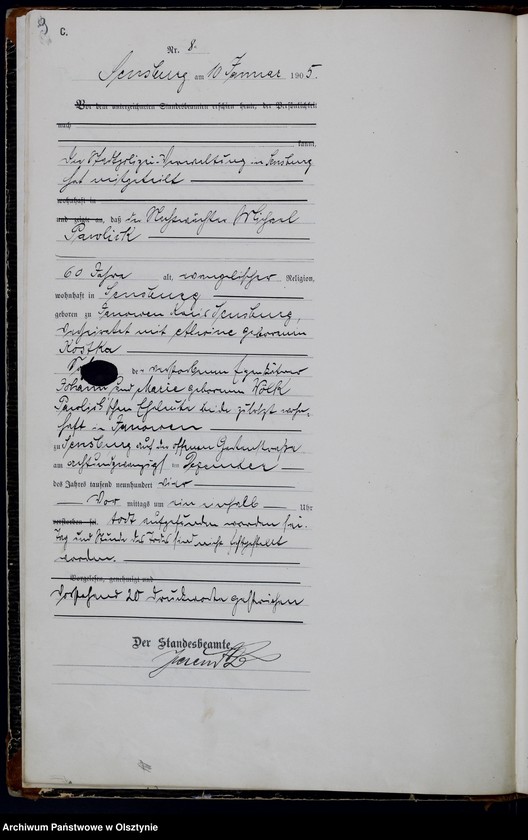 C.
Nr. 8.
Sensburg am 10 Januar 1905.
Vor dem unterzeichneten Standesbeamten erschien heute, der Persönlichkeit
nach
kannt,
Die Stadtpolizei-Verwaltung in Sensburg
hat mitgeteilt
wohnhaft in
und zeigte an, daß der Nachtwächter Michael
Pawlick
60 Jahre alt, evangelischer Religion,
wohnhaft in Sensburg
geboren zu Janowen Kreis Sensburg,
verheiratet mit geborenen
Kostka
der verstorbenen Eigenkätner
Johann und Marie geborenen
Pawlick'schen Eheleute beide zuletzt wohn-
haft in Janowen
zu Sensburg auf der offenen Gartenstraße
am achtundzwanzigsten Dezember
des Jahres tausend neunhundert vier
Vor mittags um ein einhalb Uhr
verstorben sei. todt aufgefunden worden sei.
Tag und Stunde des Todes sind nicht festgestellt
worden.
Vorgelesen, genehmigt und
Vorstehend 20 Druckworte gestrichen
Der Standesbeamte
Archiwum Państwowe w Olsztynie